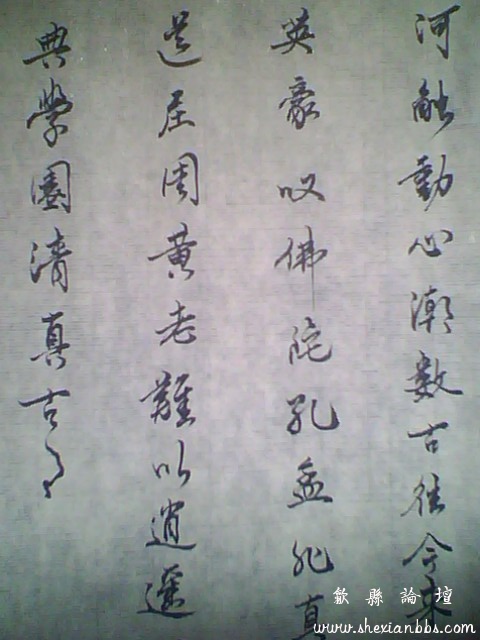 河触動心潮数古往今来
英豪叹佛陀孔孟非真
是庄周黄老難以逍遥
典學園清真古
歙縣論壇
www.shexianbbs.com